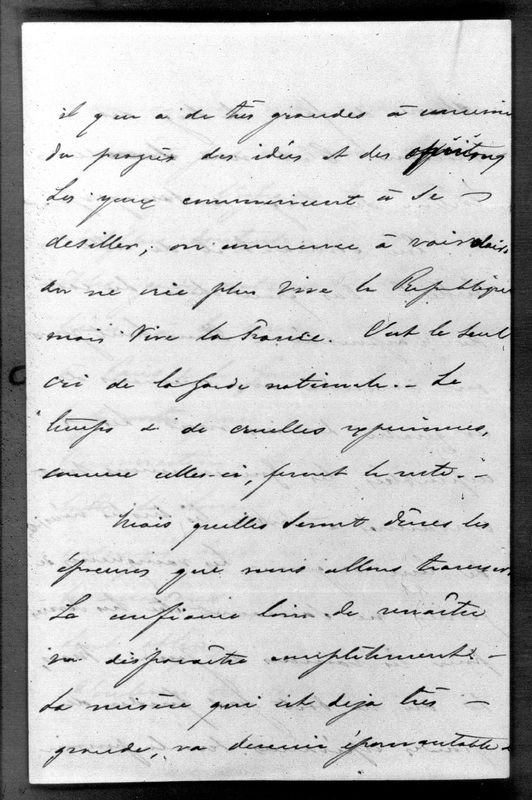 il y en a de très grandes à
du progrès des idées et des
Les yeux commencent à se
desiller; on commence à voir clair
on ne crie plus Vive la République
mais Vive la France. C'est le seul
cri de la Garde nationale. - Le
temps & de cruelles expériences,
comme celles-ci, feront le reste. -
Mais quelles seront dures les
épreuves que nous allons traverser.
La confiance loin de renaître
va disparaître complètement -
La misère qui est déjà très -
grande, va devenir épouvantable